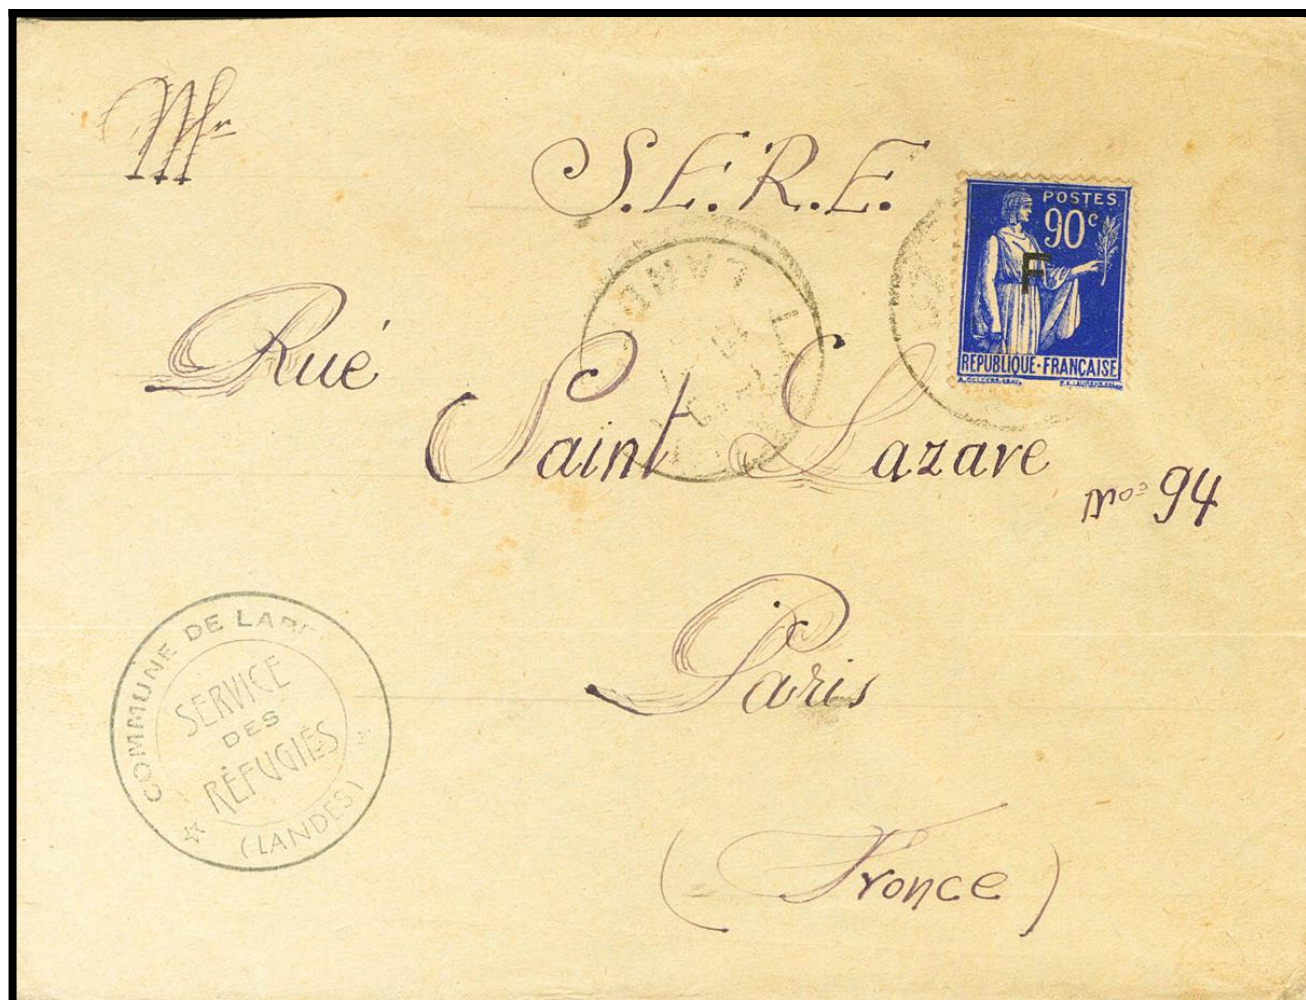 Mr
S.E.R.E.
POSTES
90c
F
REPUBLIQUE·FRANÇAISE
LAND
Rué
Saint Lazare
no= 94
Paris
(Fronce)
COMMUNE DE LABE
SERVICE
DES
RÉFUGIÉS
(LANDES)